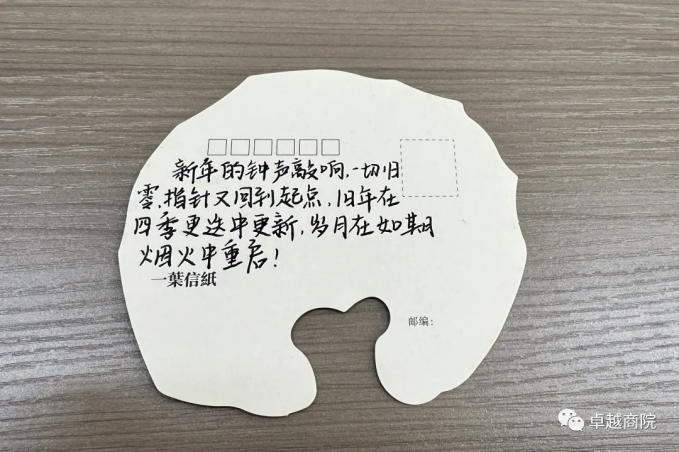 新年的钟声敲响,一切归
零,指针又回到起点,旧年在
四季更迭中更新,岁月在如期
烟火中重启!
一葉信紙
邮编:
卓越商院